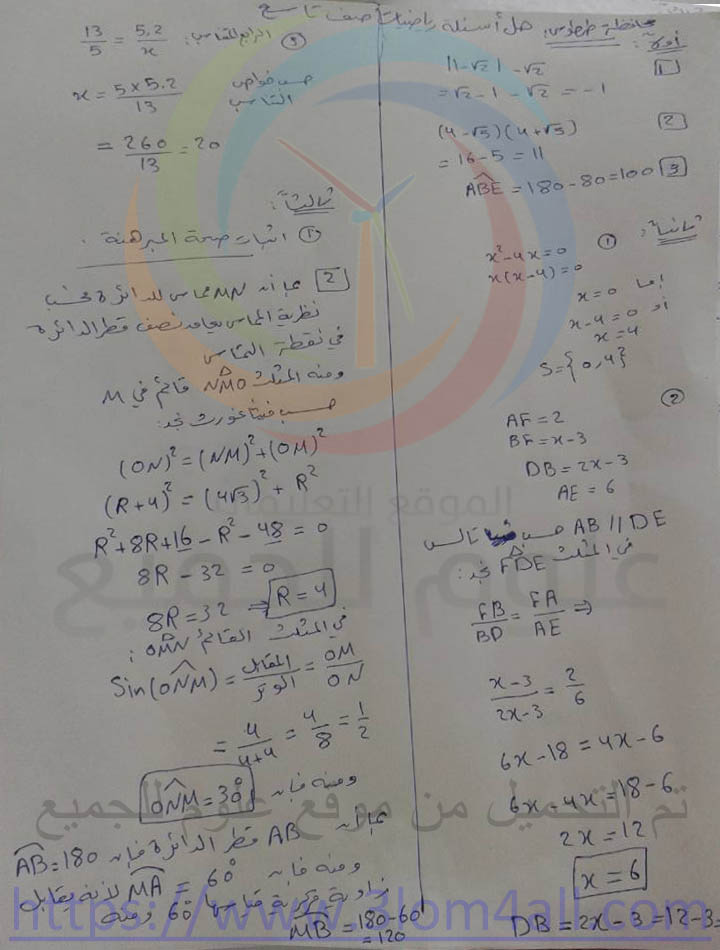 محافظة طرطوس: حل أسئلة رياضيات صف تاسع
أولاً:
1
|1-√2| -√2
= √2 -1 -√2 = -1
2
(4-√5)(4+√5)
= 16-5 = 11
3
ABE = 180-80=100
ثانياً: ①
x²-4x=0
x(x-4)=0
إما x=0
أو x-4=0
x=4
S={0,4}
②
AF=2
BF=x-3
DB=2x-3
AE=6
AB // DE حسب تالس
في المثلث FDE نجد:
FB/BD = FA/AE ⇒
x-3/2x-3 = 2/6
6x-18 = 4x-6
6x-4x=18-6
2x=12
x=6
DB=2x-3=12-3=
③ الرابع المتناسب: 13/5 = 5,2/x
x = 5×5.2/13 حسب خواص التناسب
= 260/13 = 20
ثالثاً:
① اثبات صحة المبرهنة.
2 بما أن MN مماس للدائرة فحسب
نظرية المماس يعامد نصف قطر الدائرة
في نقطة التماس
ومنه المثلث NMO قائم في M
حسب فيثاغورث نجد:
(ON)² = (NM)² + (OM)²
(R+4)² = (4√3)² + R²
R²+8R+16-R²-48=0
8R-32=0
8R=32 ⇒ R=4
في المثلث القائم OMN:
Sin(ONM) = المقابل/الوتر = OM/ON
= 4/4+4 = 4/8 = 1/2
ومنه فإن ONM=30°
بما أن AB قطر الدائرة فإن AB=180
ومنه فإن MA = 60° لأنه يقابل
زاوية مركزية قياسها 60 ومنه
MB = 180-60
=120
الموقع التعليمي
علوم للجميع
تم التحميل من موقع علوم للجميع
https://www.3lom4all.com